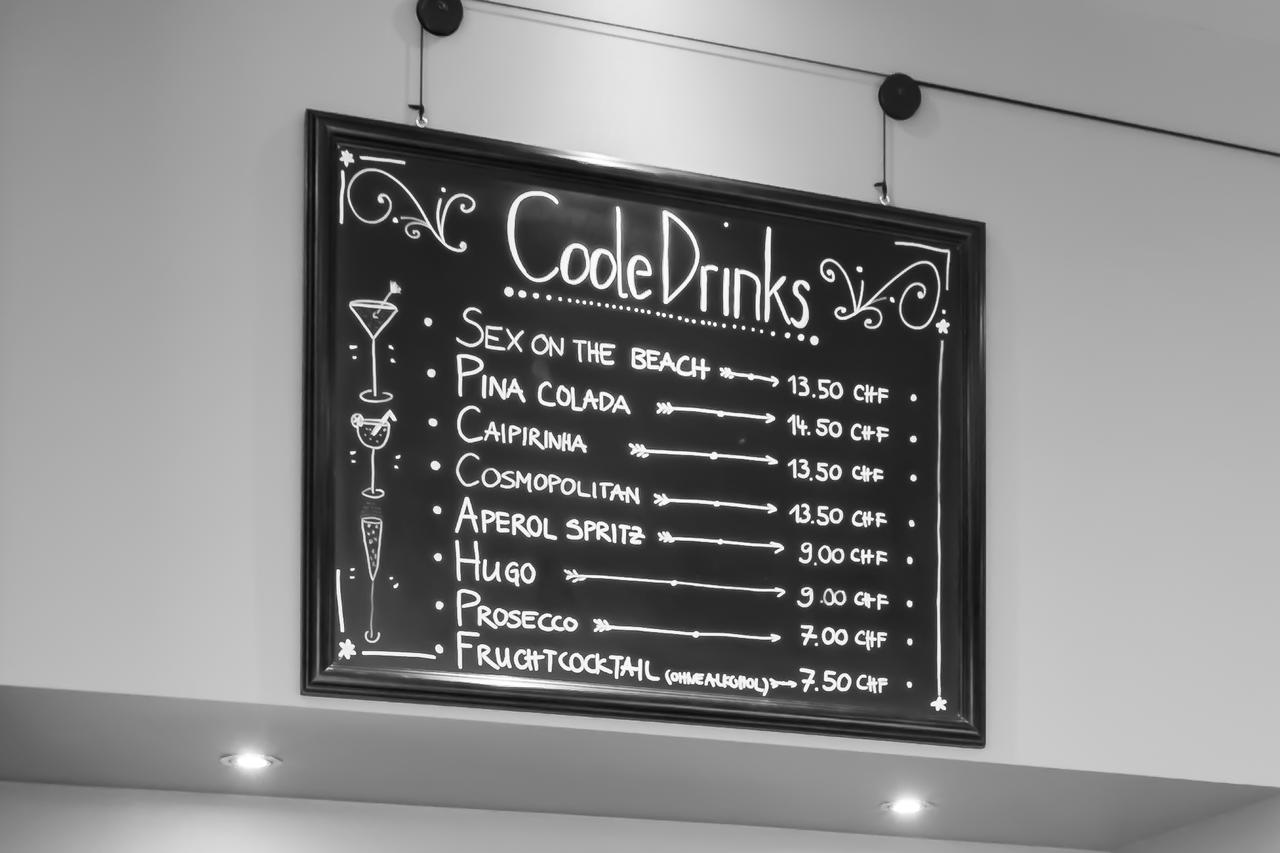 Coole Drinks
• SEX ON THE BEACH 13.50 CHF •
• PINA COLADA 14.50 CHF •
• CAIPIRINHA 13.50 CHF •
• COSMOPOLITAN 13.50 CHF •
• APEROL SPRITZ 9.00 CHF •
• HUGO 9.00 CHF •
• PROSECCO 7.00 CHF •
• FRUCHTCOCKTAIL (OHNE ALKOHOL) 7.50 CHF •